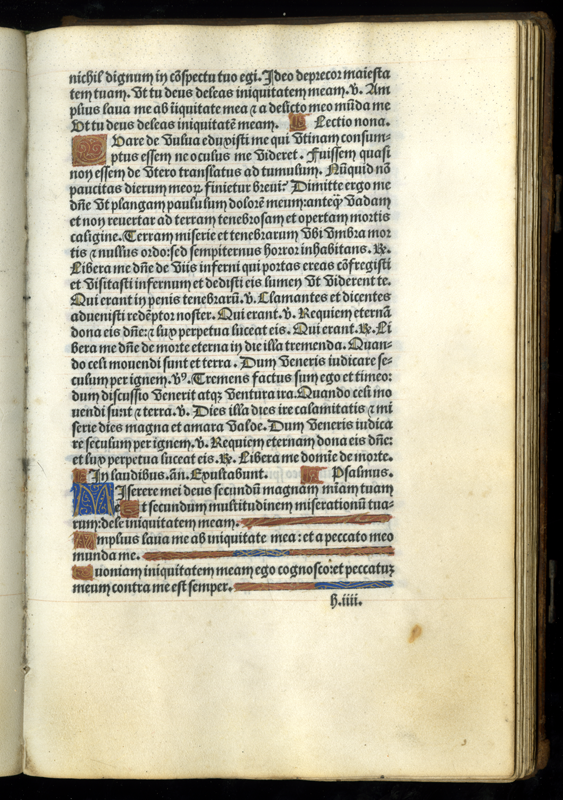 nichil dignum in cõspectu tuo egi. Ideo deprecor maiesta
tem tuam. Vt tu deus deleas iniquitatem meam. v. Am
plius laua me ab iiquitate mea ⁊ a delicto meo mũda me
Vt tu deus deleas iniquitatẽ meam. Lectio nona.
Quare de vulua eduxisti me qui vtinam consum-
ptus essem ne oculus me videret. Fuissem quasi
non essem de vtero translatus ad tumulum. Nũquid nõ
paucitas dierum meoꝝ finietur breui? Dimitte ergo me
dñe vt plangam paululum dolorẽ meum: anteq̃ vadam
et non reuertar ad terram tenebrosam et opertam mortis
caligine. Terram miserie et tenebrarum vbi vmbra mor
tis ⁊ nullus ordo: sed sempiternus horror inhabitans. ℟.
Libera me dñe de viis inferni qui portas ereas cõfregisti
et visitasti infernum et dedisti eis lumen vt viderent te.
Qui erant in penis tenebrarũ. v. Clamantes et dicentes
aduenisti redẽptor noster. Qui erant. v. Requiem eternã
dona eis dñe: ⁊ lux perpetua luceat eis. Qui erant. ℟. Li
bera me dñe de morte eterna in die illa tremenda. Quan-
do celi mouendi sunt et terra. Dum veneris iudicare se-
culum per ignem. vꝰ. Tremens factus sum ego et timeo:
dum discussio venerit atqꝫ ventura ira. Quando celi mo
uendi sunt ⁊ terra. v. Dies illa dies ire calamitatis ⁊ mi
serie dies magna et amara valde. Dum veneris iudica
re seculum per ignem. v. Requiem eternam dona eis dñe:
et lux perpetua luceat eis. ℟. Libera me domie de morte.
In laudibus. añ. Exultabunt. Psalmus.
Miserere mei deus secundũ magnam miam tuam
Et secundum multitudinem miserationũ tua-
rum: dele iniquitatem meam.
Amplius laua me ab iniquitate mea: et a peccato meo
munda me.
Quoniam iniquitatem meam ego cognosco: et peccatuꝫ
meum contra me est semper.
h.iiii.